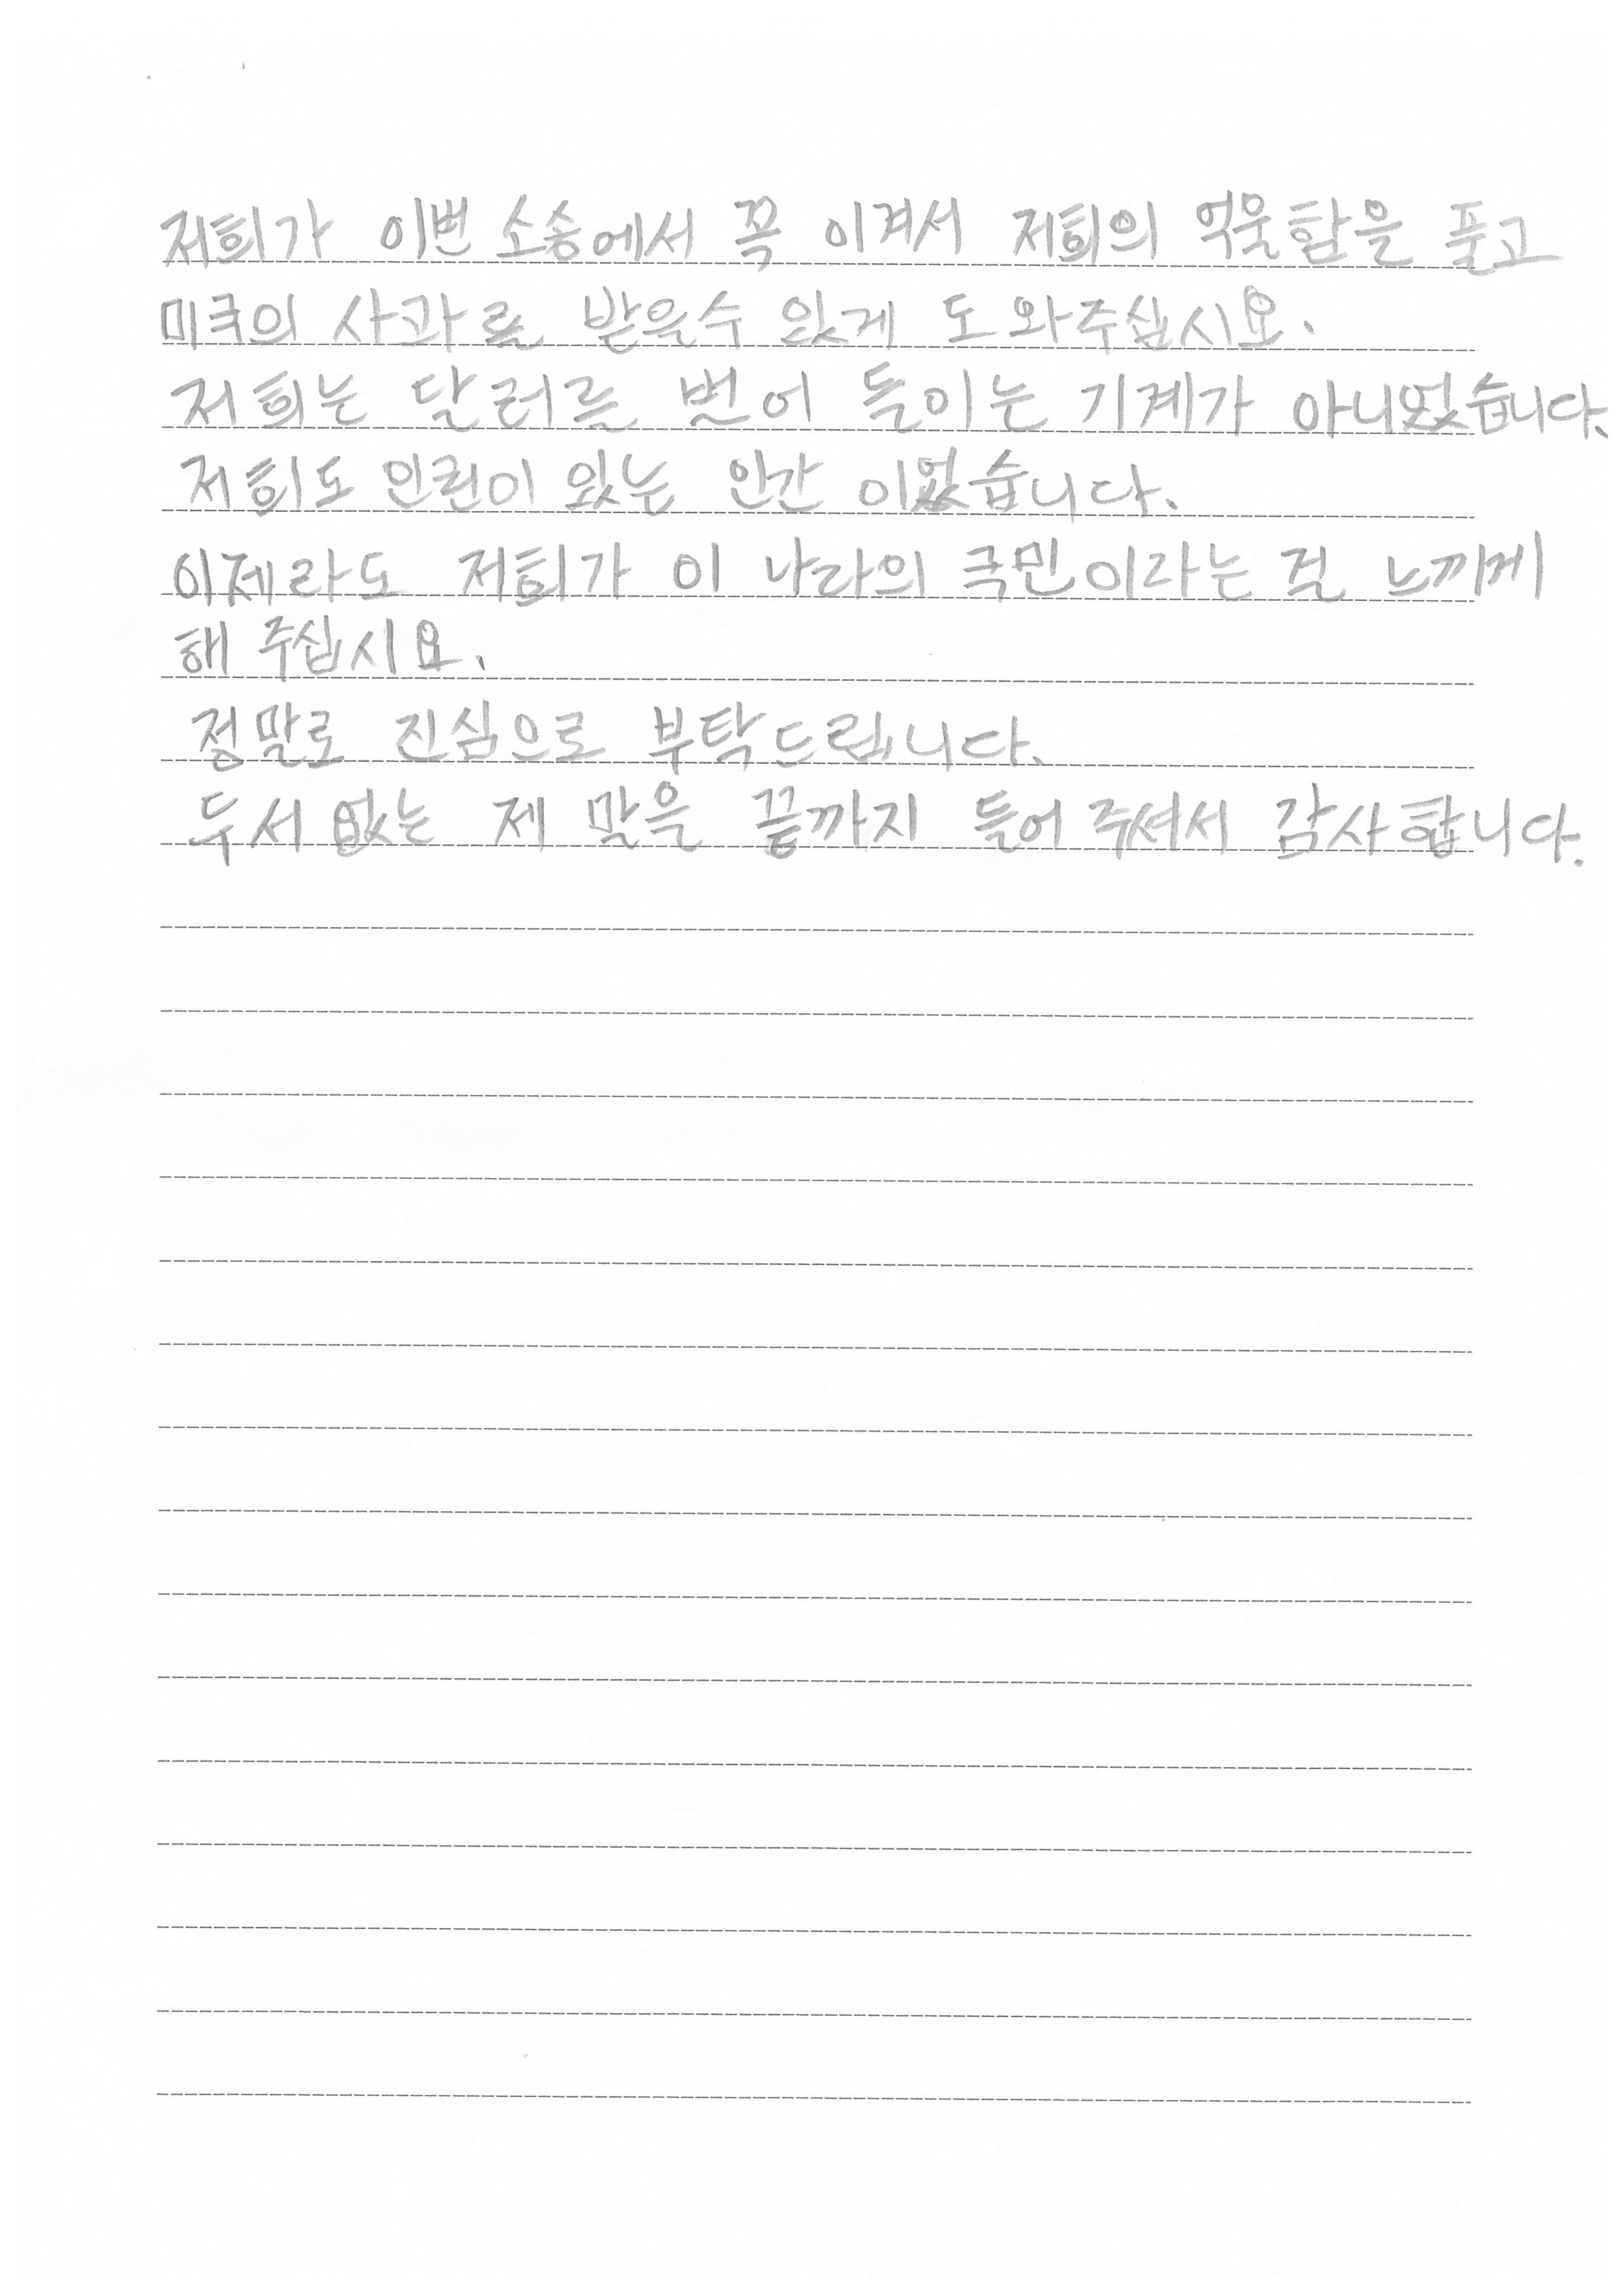 저희가 이번 소송에서 꼭 이겨서 저희의 억울함을 풀고
미국의 사과를 받을수 있게 도와주십시요.
저희는 달러를 벌어 들이는 기계가 아니었습니다.
저희도 인권이 있는 인간 이었습니다.
이제라도 저희가 이 나라의 국민이라는 걸 느끼게
해 주십시요.
정말로 진심으로 부탁드립니다.
두서 없는 제 말을 끝까지 들어 주셔서 감사합니다.